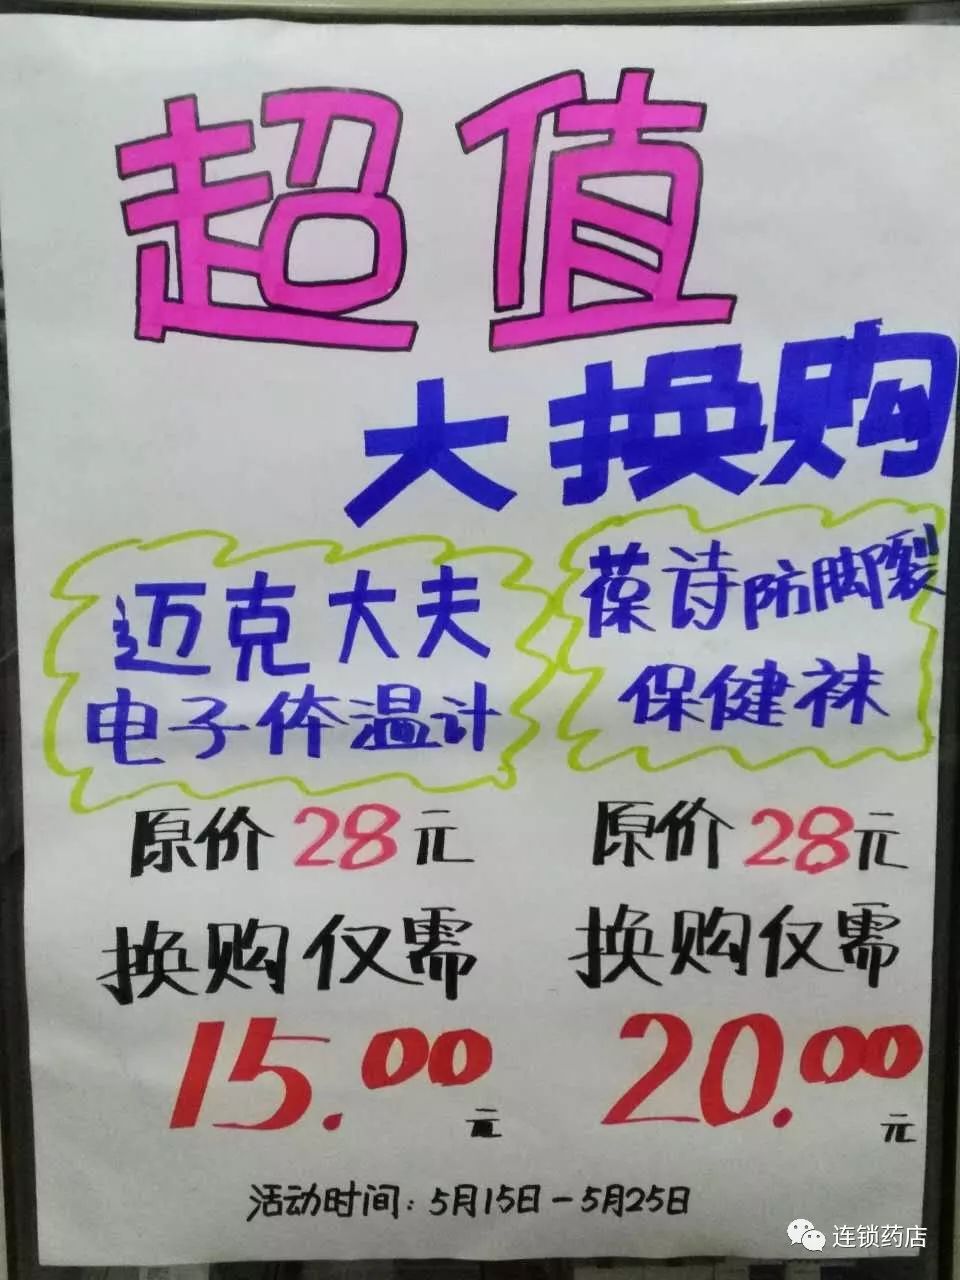 超值
大换购
迈克大夫
电子体温计
原价28元
换购仅需
15.00元
葆诗防脚裂
保健袜
原价28元
换购仅需
20.00元
活动时间：5月15日-5月25日
连锁药店